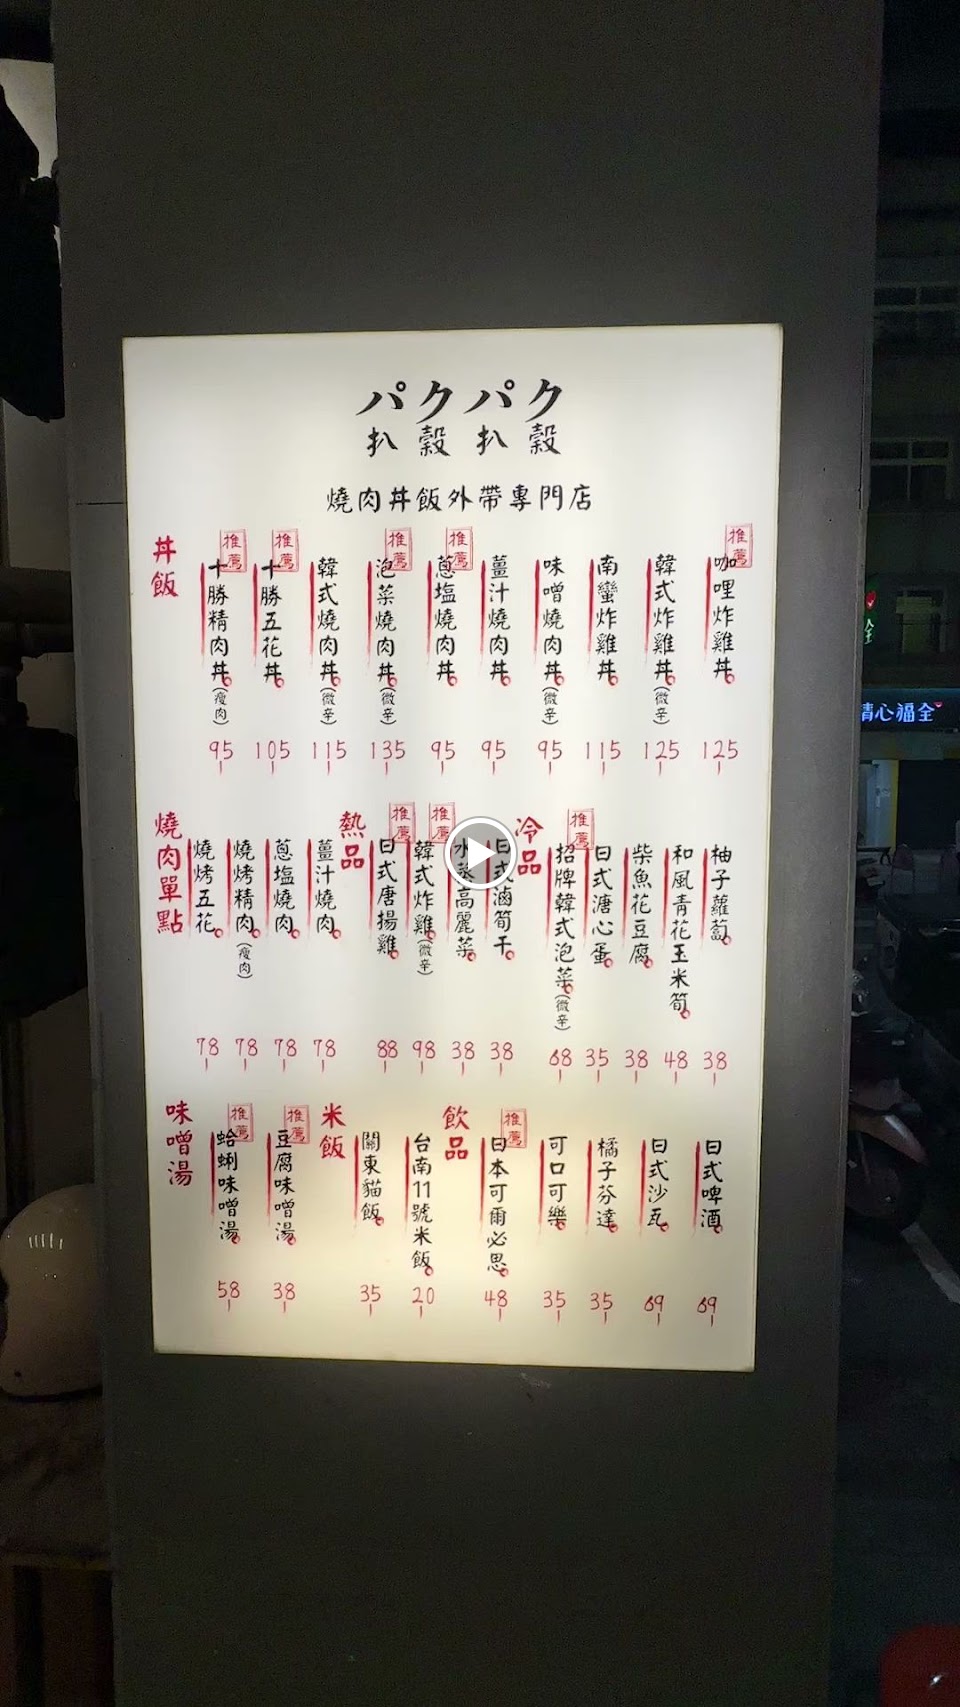 パクパク
扒穀扒穀
燒肉丼飯外帶專門店
丼飯
推薦
十勝精肉丼(瘦肉)
95
推薦
十勝五花丼
105
韓式燒肉丼(微辛)
115
推薦
泡菜燒肉丼(微辛)
135
推薦
蔥塩燒肉丼
95
薑汁燒肉丼
95
味噌燒肉丼(微辛)
95
南蠻炸雞丼
115
韓式炸雞丼(微辛)
125
推薦
咖哩炸雞丼
125
燒肉單點
燒烤五花
78
燒烤精肉(瘦肉)
78
蔥塩燒肉
78
薑汁燒肉
78
熱品
推薦
日式唐揚雞
88
推薦
韓式炸雞(微辛)
98
水蒸高麗菜
38
日式滷筍干
38
冷品
推薦
招牌韓式泡菜(微辛)
68
日式溏心蛋
35
柴魚花豆腐
38
和風青花玉米筍
48
柚子蘿蔔
38
味噌湯
推薦
蛤蜊味噌湯
58
推薦
豆腐味噌湯
38
米飯
關東貓飯
35
台南11號米飯
20
飲品
推薦
日本可爾必思
48
可口可樂
35
橘子芬達
35
日式沙瓦
69
日式啤酒
69
情心福全